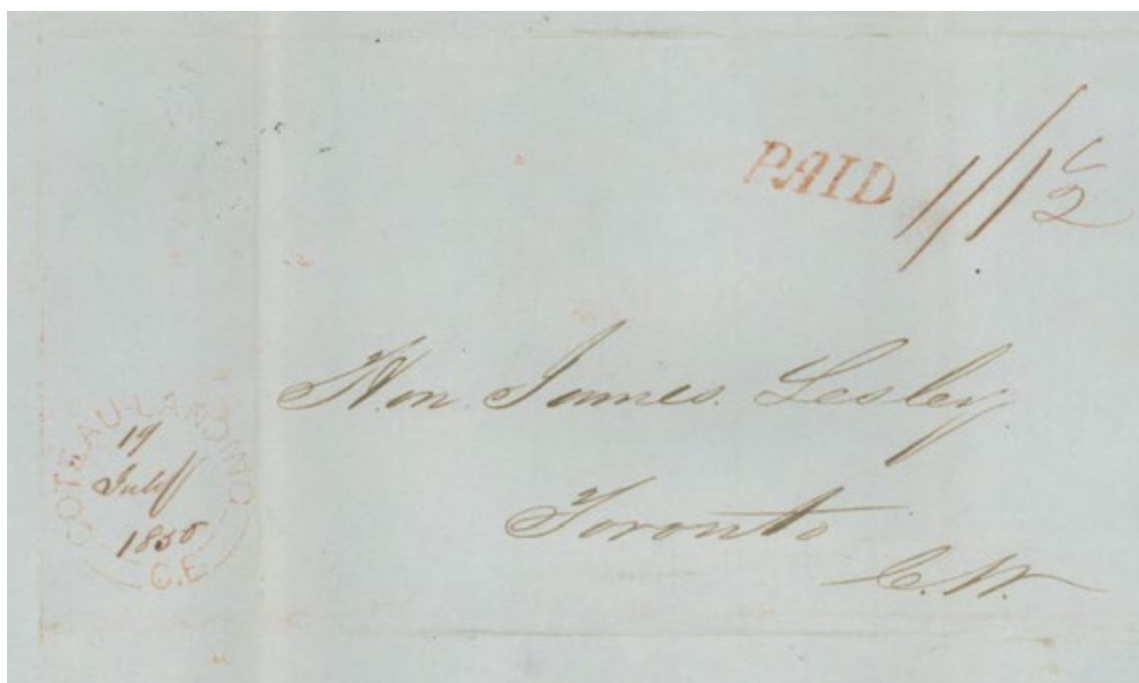 PAID 1/1½
Hon. James. Lesley
Toronto
C.W.
COTEAU-LANDING
19
July
1850
C.E